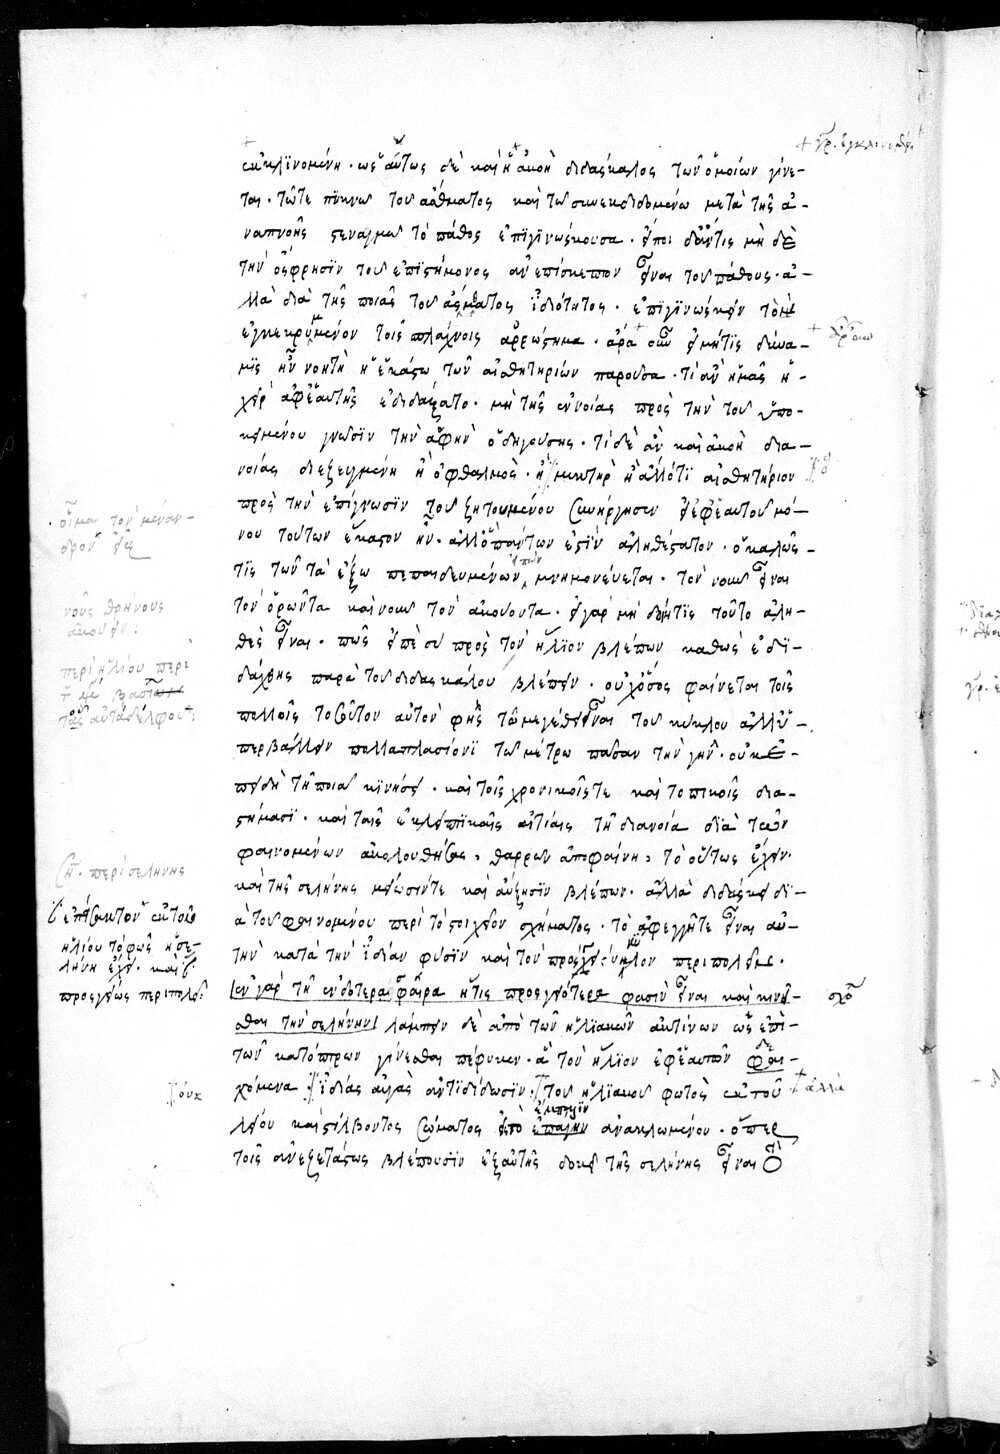 ἐκκλινομένη · ὡς αὔτως δὲ καὶ ἡ ἀκοὴ διδάσκαλος τῶν ὁμοίων γίνε-
ται · τῶτε πυκνῶ τοῦ ἄσθματος καὶ τῶ συνεκδιδομένω μετὰ τῆς ἀ-
ναπνοῆς στεναγμῶ τὸ πάθος ἐπιγινώσκουσα · εἴποι δἄντις μὴ δὲ
τὴν ὄσφρησιν τοῦ ἐπιστήμονος ἀνεπίσκεπτον εἶναι τοῦ πάθους · ἀ-
λλὰ διὰ τῆς ποιᾶς τοῦ ἄσθματος ἰδιότητος · ἐπιγινώσκειν τὸ
ἐγκεκρυμμένον τοῖς σπλάγχνοις ἀρρώστημα · ἄρα οὖν εἰ μήτις δύνα-
μις ἦν νοητὴ ἡ ἑκάστω τῶν αἰσθητηρίων παροῦσα · τί ἂν ἡμᾶς ἡ
χεὶρ ἀφ' ἑαυτῆς ἐδιδάξατο · μὴ τῆς ἐννοίας πρὸς τὴν τοῦ ὑπο-
κειμένου γνῶσιν τὴν ἁφὴν ὁδηγούσης · τί δὲ ἂν καὶ ἀκοὴ δια-
νοίας διεζευγμένη ἢ ὀφθαλμὸς · ἢ μυκτὴρ ἢ ἄλλότι αἰσθητήριον
πρὸς τὴν ἐπίγνωσιν τοῦ ζητουμένου συνήργησεν εἰ ἐφ' ἑαυτοῦ μό-
νου τούτων ἕκαστον ἦν · ἀλλ' ὃ πάντων ἐστὶν ἀληθέστατον · ὃ καλῶς
τίς τῶν τὰ ἔξω πεπαιδευμένων εἰπὼν μνημονεύεται · τὸν νοῦν εἶναι
τὸν ὁρῶντα καὶ νοῦν τὸν ἀκούοντα · εἰ γὰρ μὴ δοίητις τοῦτο ἀλη-
θὲς εἶναι · πῶς εἰπὲ σὺ πρὸς τὸν ἥλιον βλέπων καθὼς ἐδι-
δάχθης παρὰ τοῦ διδασκάλου βλέπειν · οὐχ ὅσος φαίνεται τοῖς
πολλοῖς τοσοῦτον αὐτὸν φῂς τῶ μεγέθει εἶναι τοῦ κύκλου ἀλλ' ὑ-
περβάλλειν πολλαπλασίονι τῶ μέτρω πᾶσαν τὴν γῆν · οὐκ ἐ-
πειδὴ τῆ ποιᾶ κινήσει · καὶ τοῖς χρονικοῖς τε καὶ τοπικοῖς δια-
στήμασι · καὶ ταῖς ἐκλειπτικαῖς αἰτίαις τῆ διανοία διὰ τῶν
φαινομένων ἀκολουθήσας, θαρρῶν ἀποφαίνη, τὸ οὕτως ἔχειν ·
καὶ τῆς σελήνης μείωσίντε καὶ αὔξησιν βλέπων · ἄλλα διδάσκει δι-
ὰ τοῦ φαινομένου περὶ τὸ στοιχεῖον σχήματος · τὸ ἀφεγγῆτε εἶναι αὐ-
τὴν κατὰ τὴν ἰδίαν φύσιν καὶ τὸν πρόσγειον κύκλον περιπολεῖν ·
ἐν γὰρ τῆ ἐνδοτέρα σφαίρα ἥτις προσγειότερα φασὶν εἶναι καὶ κινεῖ-
σθαι τὴν σελήνην λάμπειν δὲ ἀπὸ τῶν ἡλιακῶν ἀκτίνων ὡς ἐπὶ
τῶν κατόπτρων γίνεσθαι πέφυκεν · ἃ τὸν ἥλιον ἐφ' ἑαυτῶν δε-
χόμενα ἰδίας αὐγὰς ἀντιδίδωσιν τοῦ ἡλιακοῦ φωτὸς ἐκ τοῦ
λείου καὶ στίλβοντος σώματος ἀνακλωμένου · ὅπερ
τοῖς ἀνεξετάστως βλέπουσιν ἐξ αὐτῆς δοκεῖ τῆς σελήνης εἶναι
+ γρ. ἐγκλινομένη.
οἶμαι τὸν μέναν-
δρον
νοῦς θρήνους
ἀκούειν:
περὶ ἡλίου περὶ
Ση. περὶ σελήνης
ἐκτοῦ
ἡλίου τὸ φῶς ἡ σε-
λήνη ἔχει · καὶ
προσγείως περιπολεῖ:
σχό
οὐκ
+ ἀλλὰ